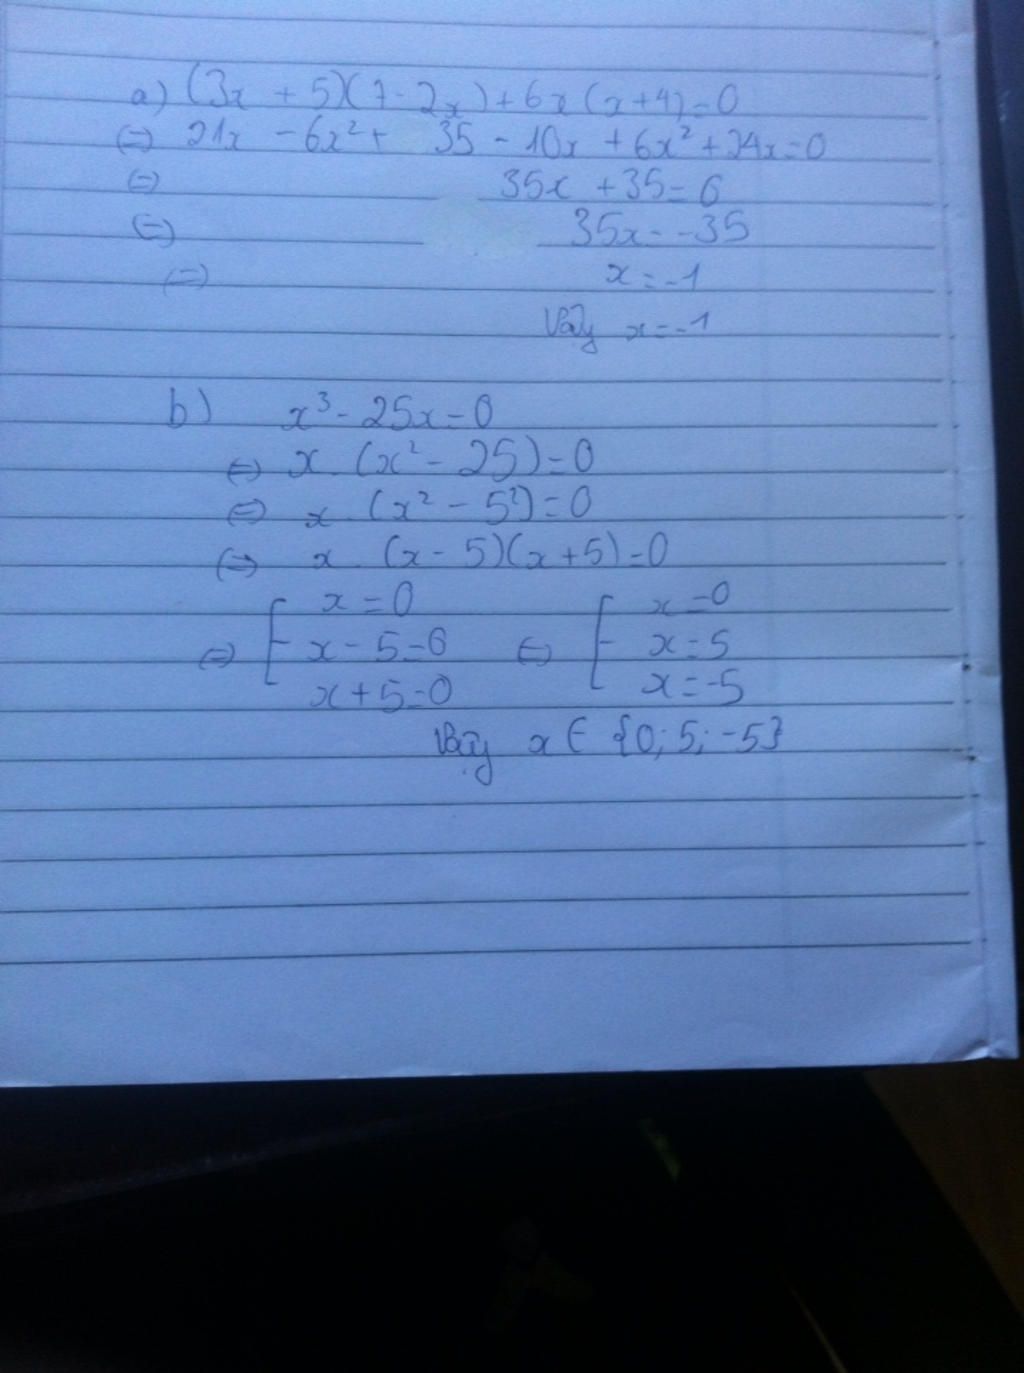 a) (3x + 5)(7 - 2x) + 6x (x + 4) = 0
(=) 21x - 6x² + 35 - 10x + 6x² + 24x = 0
(=) 35x + 35 = 0
(=) 35x = -35
(=) x = -1
Vậy x = -1
b) x³ - 25x = 0
(=) x . (x² - 25) = 0
(=) x . (x² - 5²) = 0
(=) x . (x - 5)(x + 5) = 0
x = 0 x = 0
(=) [ x - 5 = 0 (=) [ x = 5
x + 5 = 0 x = -5
Vậy x ∈ {0; 5; -5}